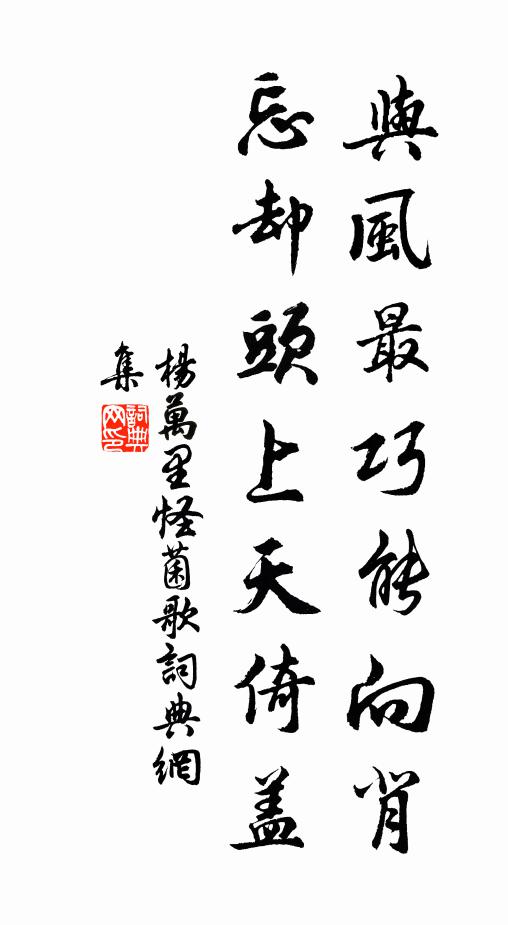 與風最巧能向背
忘却頭上天倚盖
楊萬里怪菌歌詞典網
集
詞典网印